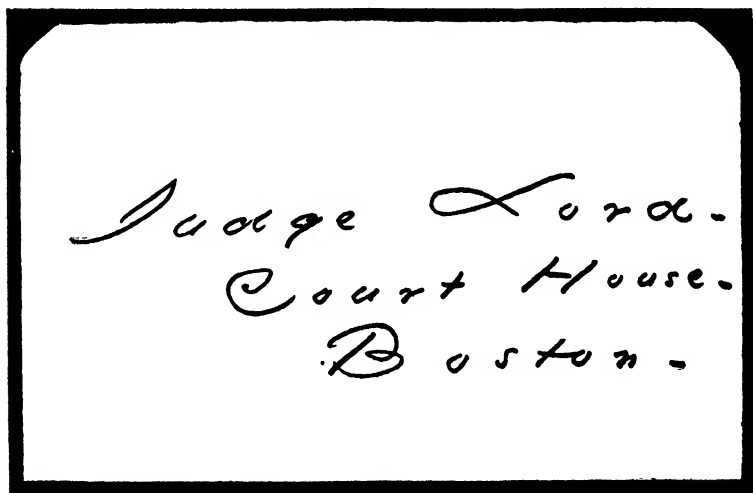 Judge Lord-
Court House-
Boston-